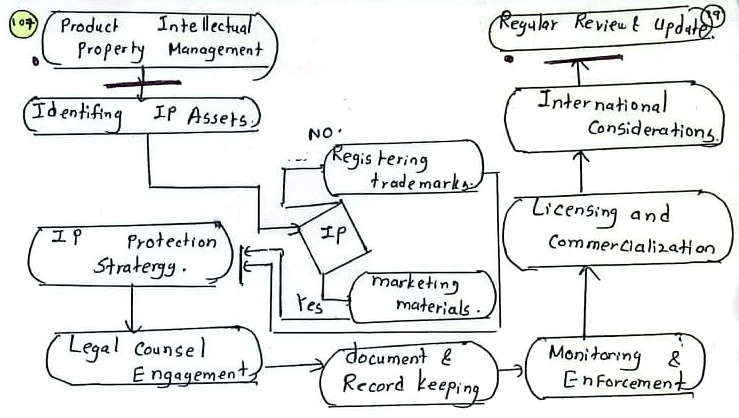 107
Product Intellectual
Property Management
Identifing IP Assets.
NO.
Registering
trademarks.
IP
Yes
marketing
materials.
IP Protection
Stratergy.
Legal Counsel
Engagement
document &
Record keeping
Monitoring &
Enforcement
Licensing and
Commercialization
International
Considerations.
Regular Review & Update